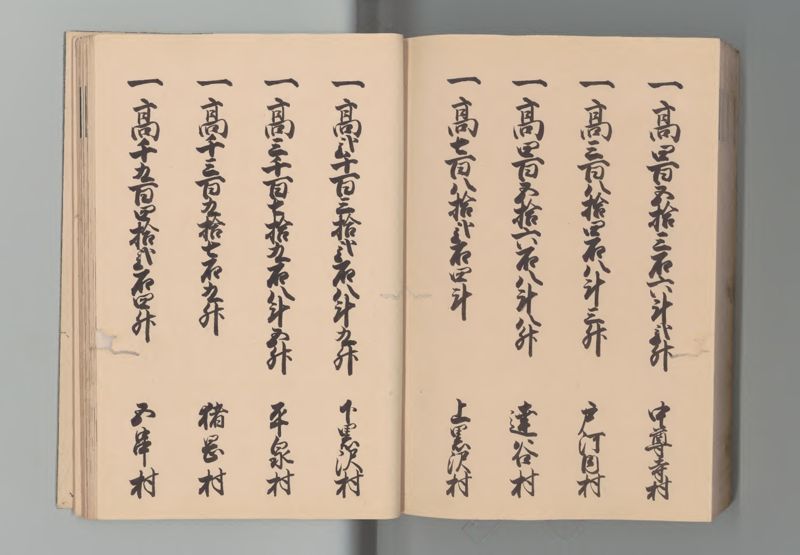 一高四百五拾三石六斗弐升 中尊寺村
一高三百八拾四石八斗三升 戸河内村
一高四百五拾六石八斗八升 達谷村
一高七百八拾弐石四斗 上黒沢村
一高弐千百三拾弐石八斗九升 下黒沢村
一高三千百七拾九石八斗五升 平泉村
一高千三百九拾七石九升 猪岡村
一高千九百四拾弐石四升 五串村